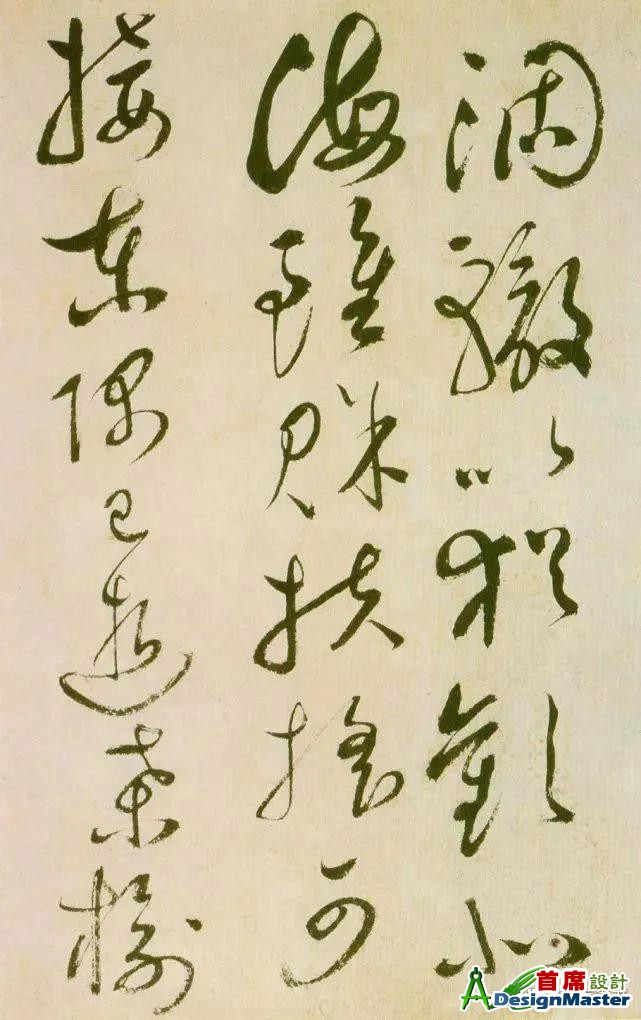 涸轍以猶歡北
海雖賒扶搖可
接東隅已逝桑榆
首席設計
DesignMaster